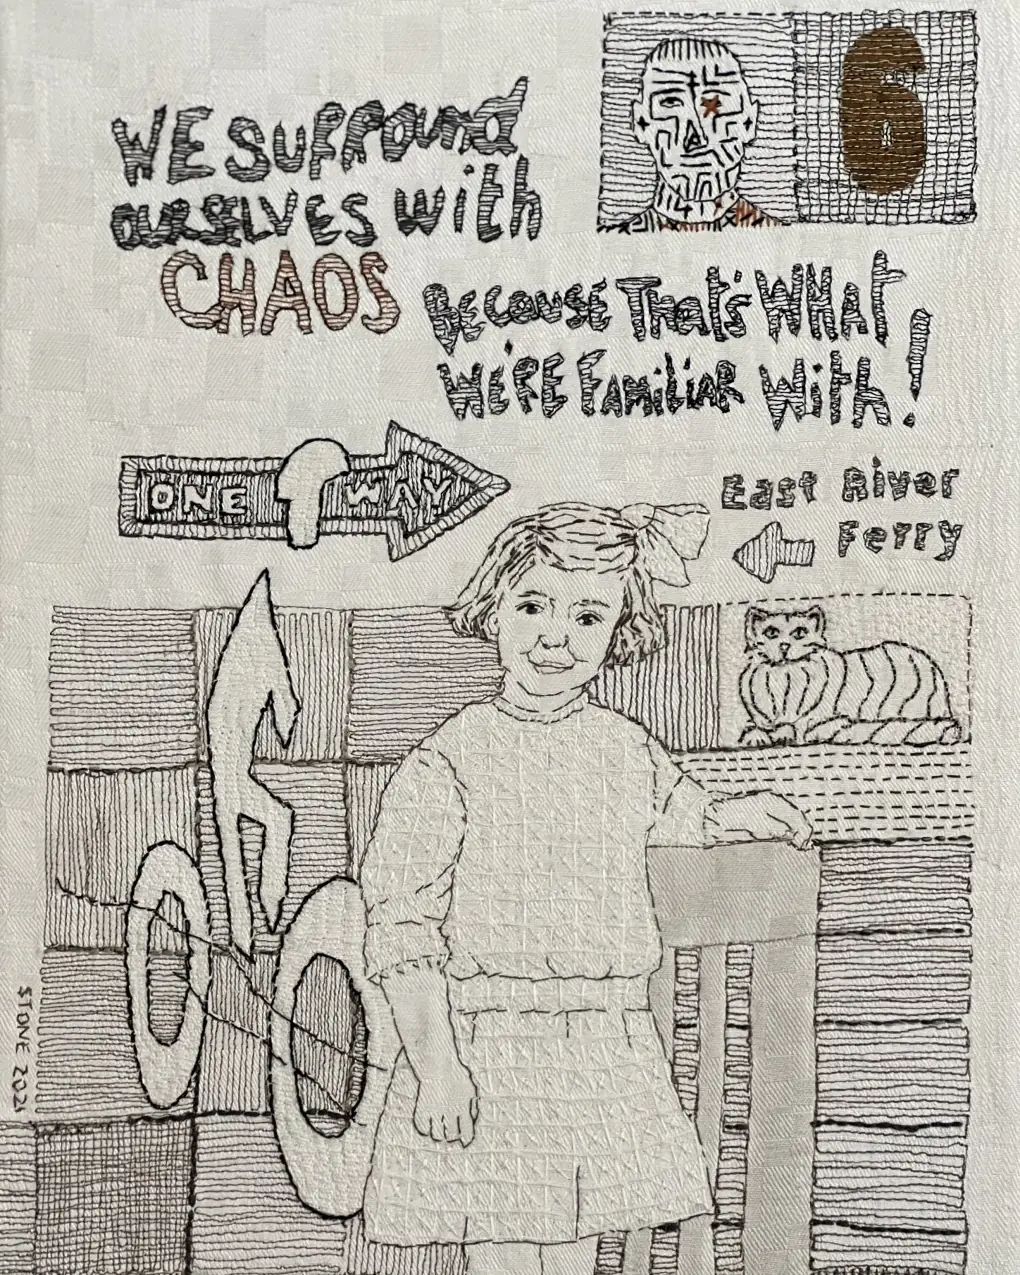 WE SURROUND
OURSELVES With
CHAOS
6
BECAUSE That's WHAt
WE'RE FAMiLiAR With!
ONE WAY
East River
Ferry
STONE 2021